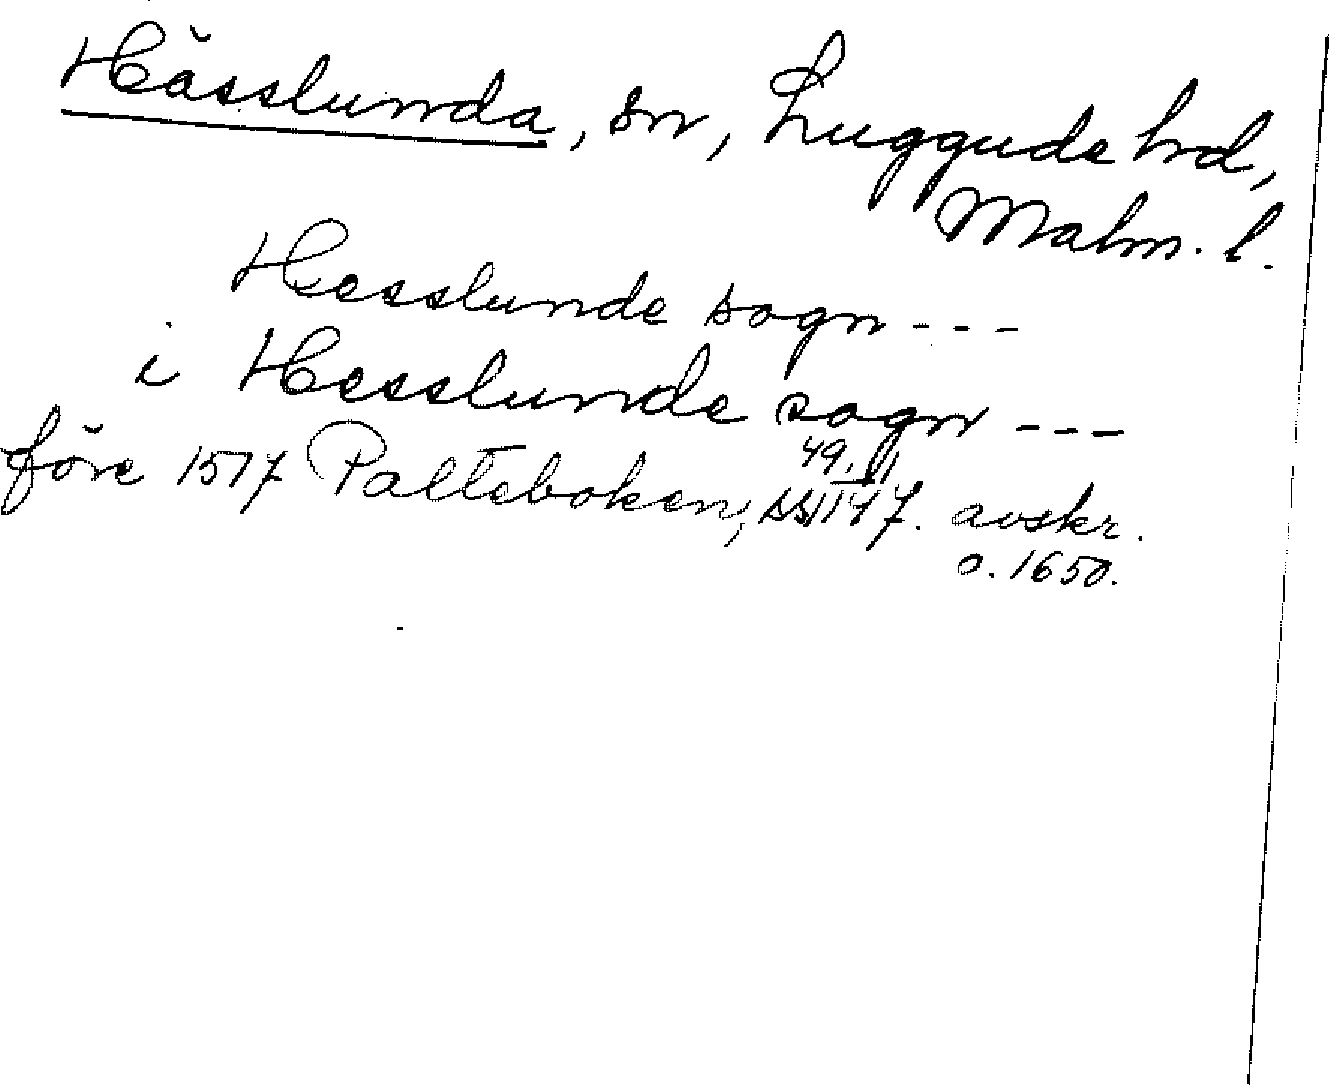 Hässlunda, sn, Luggude hd,
Malm. l.
Hesslunde sogn ---
i Hesslunde sogn ---
före 1517 Palteboken, 49. avskr.
o. 1650.